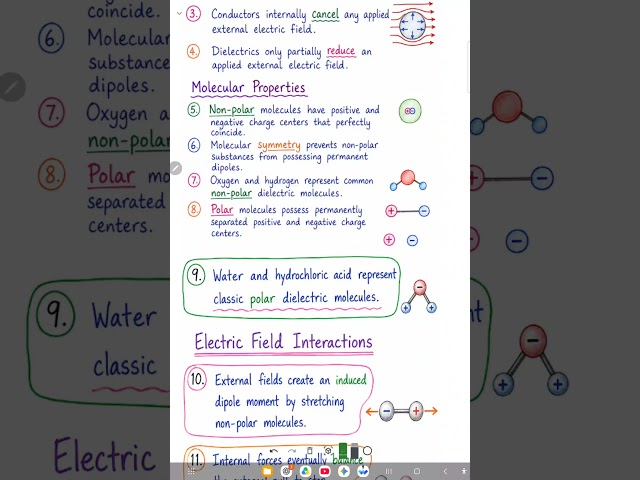 3. Conductors internally cancel any applied
external electric field.
4. Dielectrics only partially reduce an
applied external electric field.
Molecular Properties
5. Non-polar molecules have positive and
negative charge centers that perfectly
coincide.
6. Molecular symmetry prevents non-polar
substances from possessing permanent
dipoles.
7. Oxygen and hydrogen represent common
non-polar dielectric molecules.
8. Polar molecules possess permanently
separated positive and negative charge
centers.
9. Water and hydrochloric acid represent
classic polar dielectric molecules.
Electric Field Interactions
10. External fields create an induced
dipole moment by stretching
non-polar molecules.
11. Internal forces eventually balance
coincide.
6. Molecular
substance
dipoles.
7. Oxygen
non-polar
8. Polar mo
separated
centers.
9. Water
classic
Electric